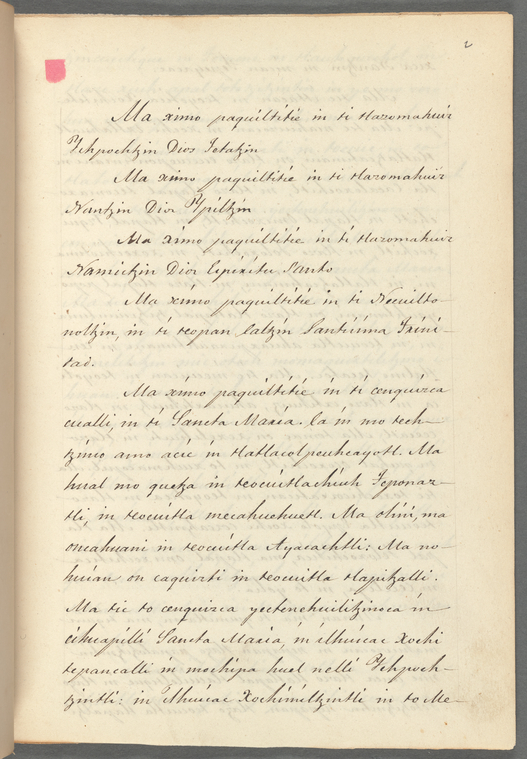 2
Ma ximo paquiltitie in ti tlazomahuiz
Ychpochtzin Dios Tetatzin
Ma ximo paquiltitie in ti tlazomahuiz
Nantzin Dios Ypiltzin
Ma ximo paquiltitie in ti tlazomahuiz
Namictzin Dios Espiritu Santo
Ma ximo paquiltitie in ti Neceuilto-
noltzin, in ti teopan Caltzin Santisima Trini-
tad.
Ma ximo paquiltitie in ti cenquizca
cualli, in ti Sancta Maria. Ca in mo tech-
tzinco amo acic in tlatlacolpeuhcayotl. Ma
hual mo quetza in teocuitlachiuh Teponaz-
tli, in teocuitla mecahuehuetl. Ma olini, ma
oncahuani in teocuitla Ayacachtli: Ma no-
huian on caquizti in teocuitla tlapitzalli.
Ma tic to cenquizca yectenehuilitzinoca in
cihuapilli Sancta Maria, in ilhuicac Xochi
tepancalli in mochipa huel nelli Ychpoch-
tzintli: in Ilhuicac Xochimiltzintli in to Me-